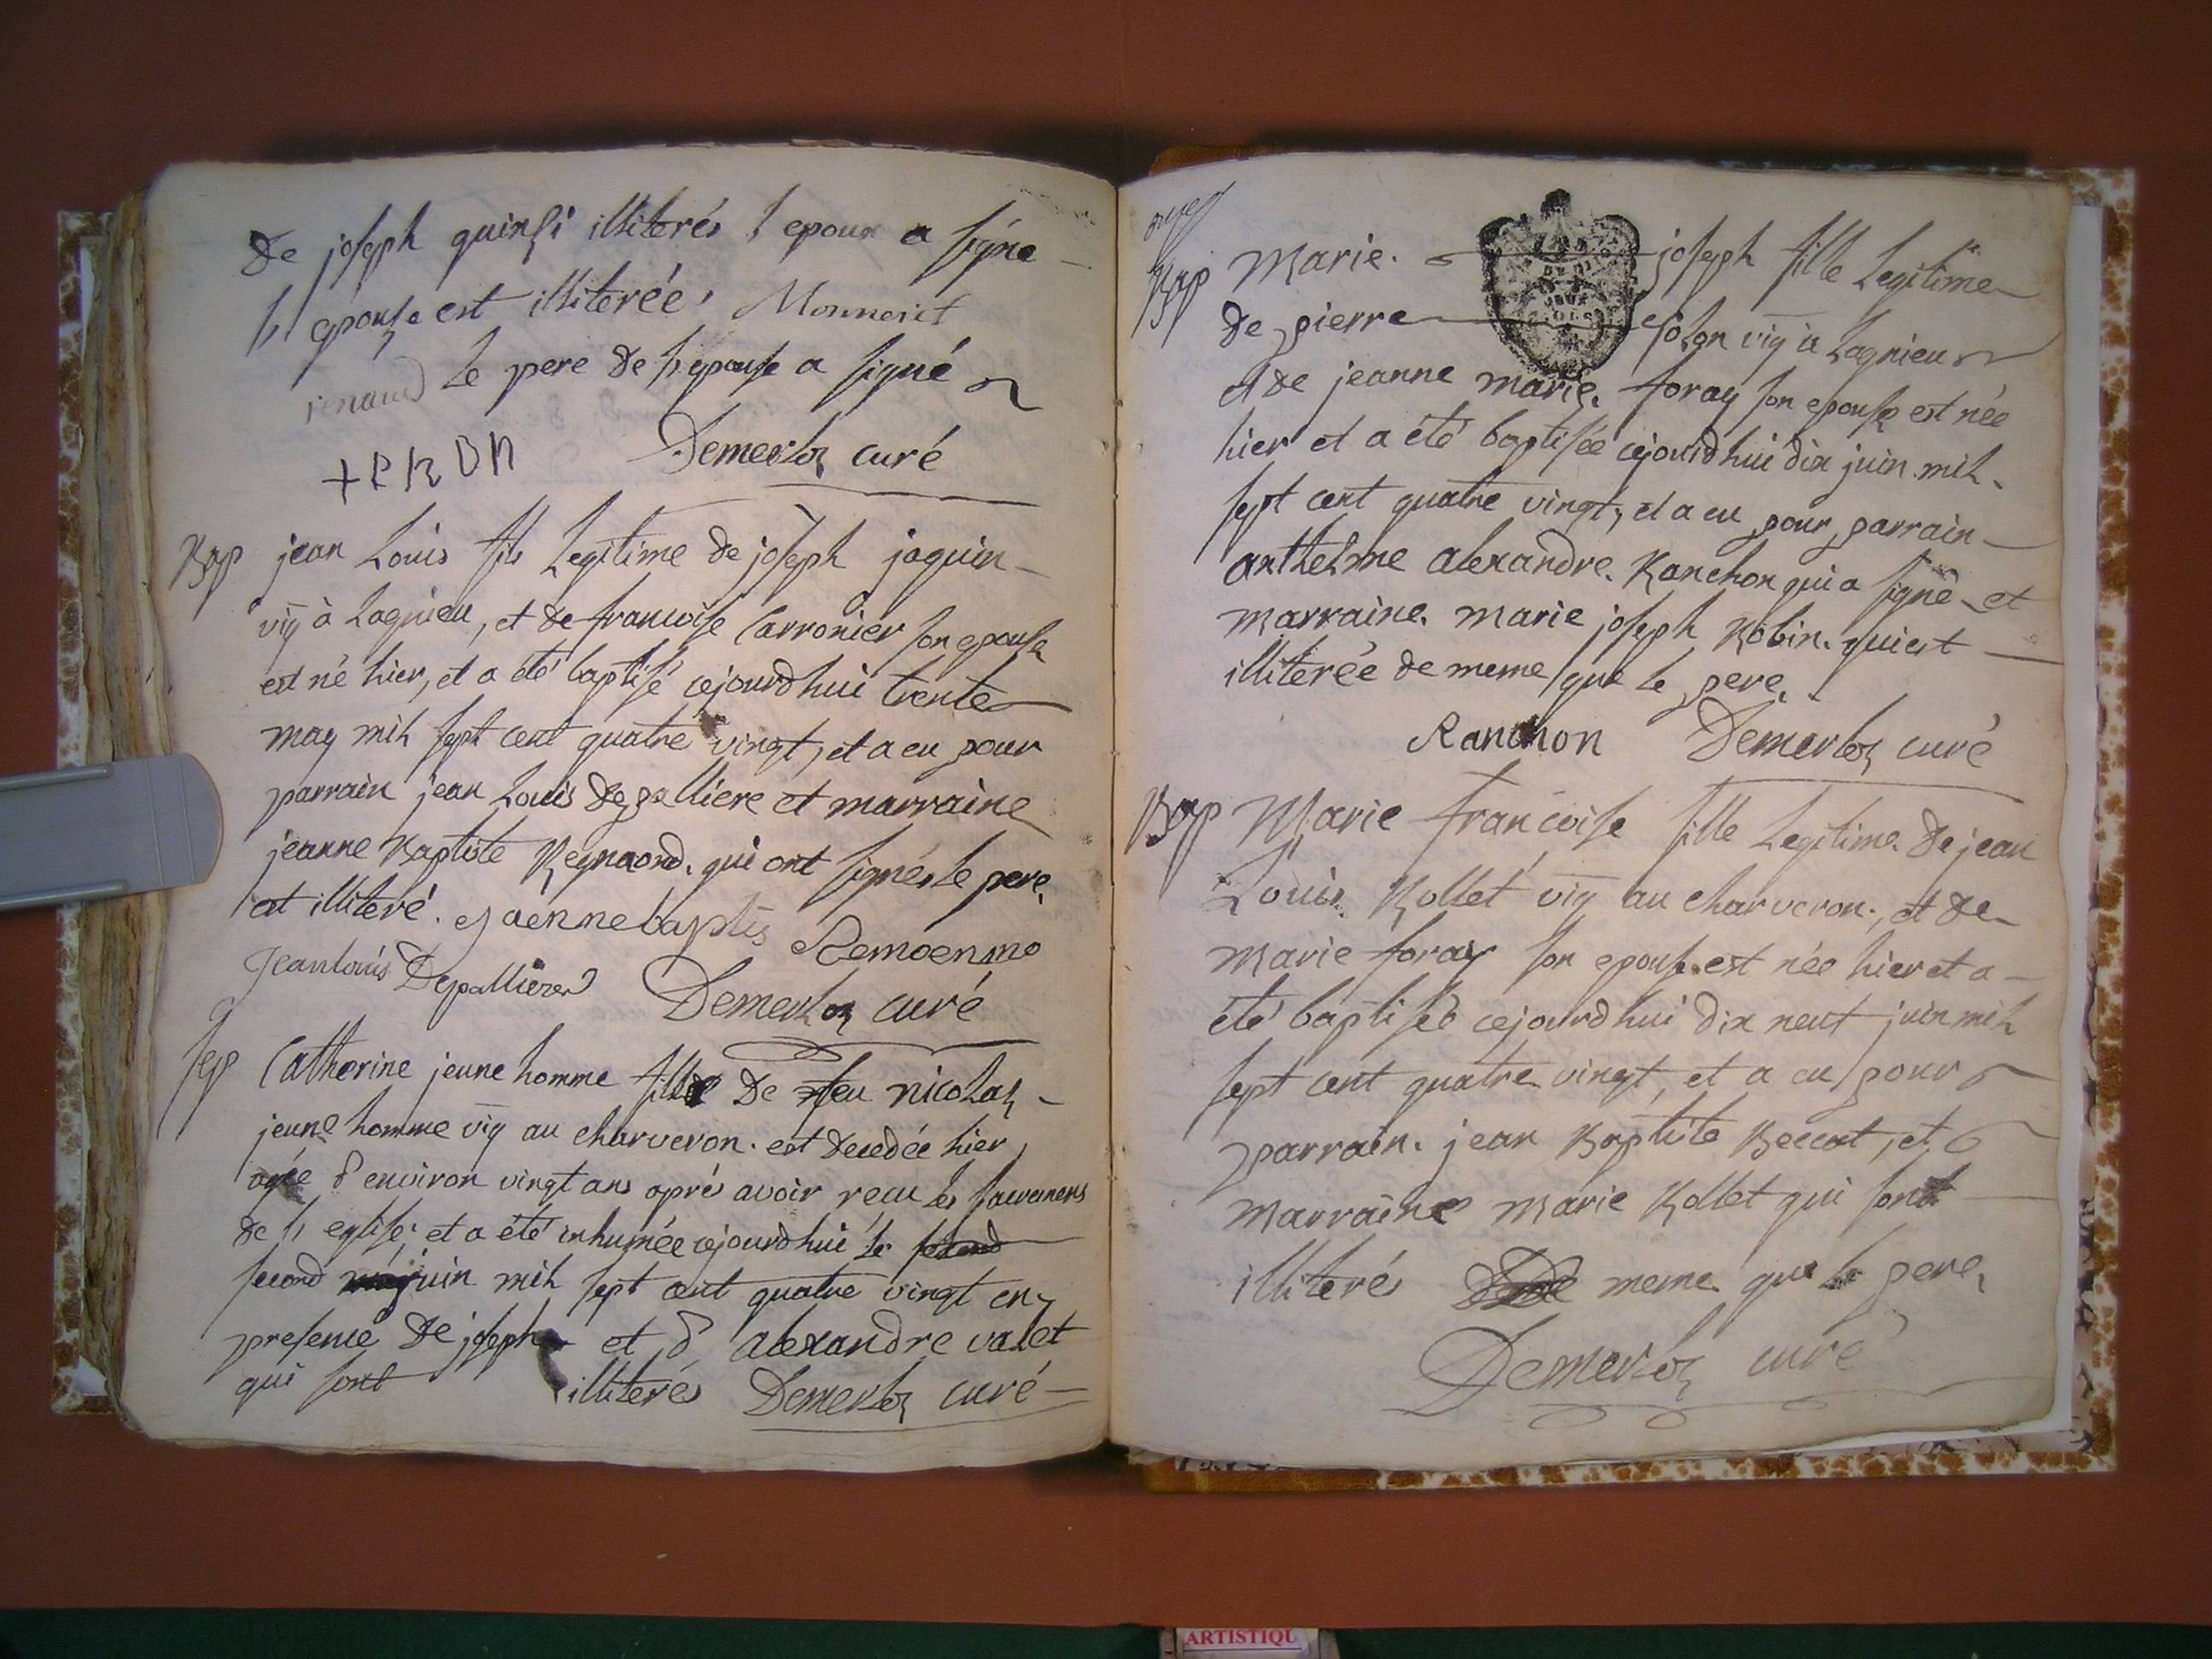 de joseph quinsi illiterés l epoux a signe
l epouse est illiterée, Monneret
renaud le pere de l epouse a signé
+ P R D N Demerloz curé
Bap jean Louis fils Legitime de joseph jaquin
vig à Lagnieu, et de francoise Carronier son epouse
est né hier, et a été baptisé cejourdhui trente
may mil sept cent quatre vingt, et a eu pour
parrain jean Louis depalliere et marraine
jeanne Baptiste Regnaond. qui ont signés le pere
est illiteré. jaennebaptis
Jeanlouis Depalliere Demerloz curé
sep Catherine jeune homme fille de feu nicolas
jeune homme vig au charveron. est decedée hier
agée d environ vingt ans aprés avoir recu les sacremens
de l eglise; et a été inhumée cejourdhui le second
second juin mil sept cent quatre vingt en
presence de joseph et d alexandre valet
qui sont illiterés Demerloz curé
Bap Marie. joseph fille Legitime
de pierre solon vig à Lagnieu
et de jeanne marie. foray son epouse est née
hier et a été baptisée cejourdhui dix juin mil
sept cent quatre vingt, et a eu pour parrain
anthelme alexandre. Ranchon qui a signé et
marraine. marie joseph Robin. qui est
illiterée de meme que le pere.
Ranchon Demerloz curé
Bap Marie francoise fille Legitime. de jean
Louis. Rollet vig au charveron., et de
marie foray son epouse est née hier et a
été baptiseé cejourdhui dix neuf juin mil
sept cent quatre vingt, et a eu pour
parrain. jean Baptiste Beccat, et
marraine marie Rollet qui sont
illiterés de meme que le pere,
Demerloz curé
ARTISTIQU